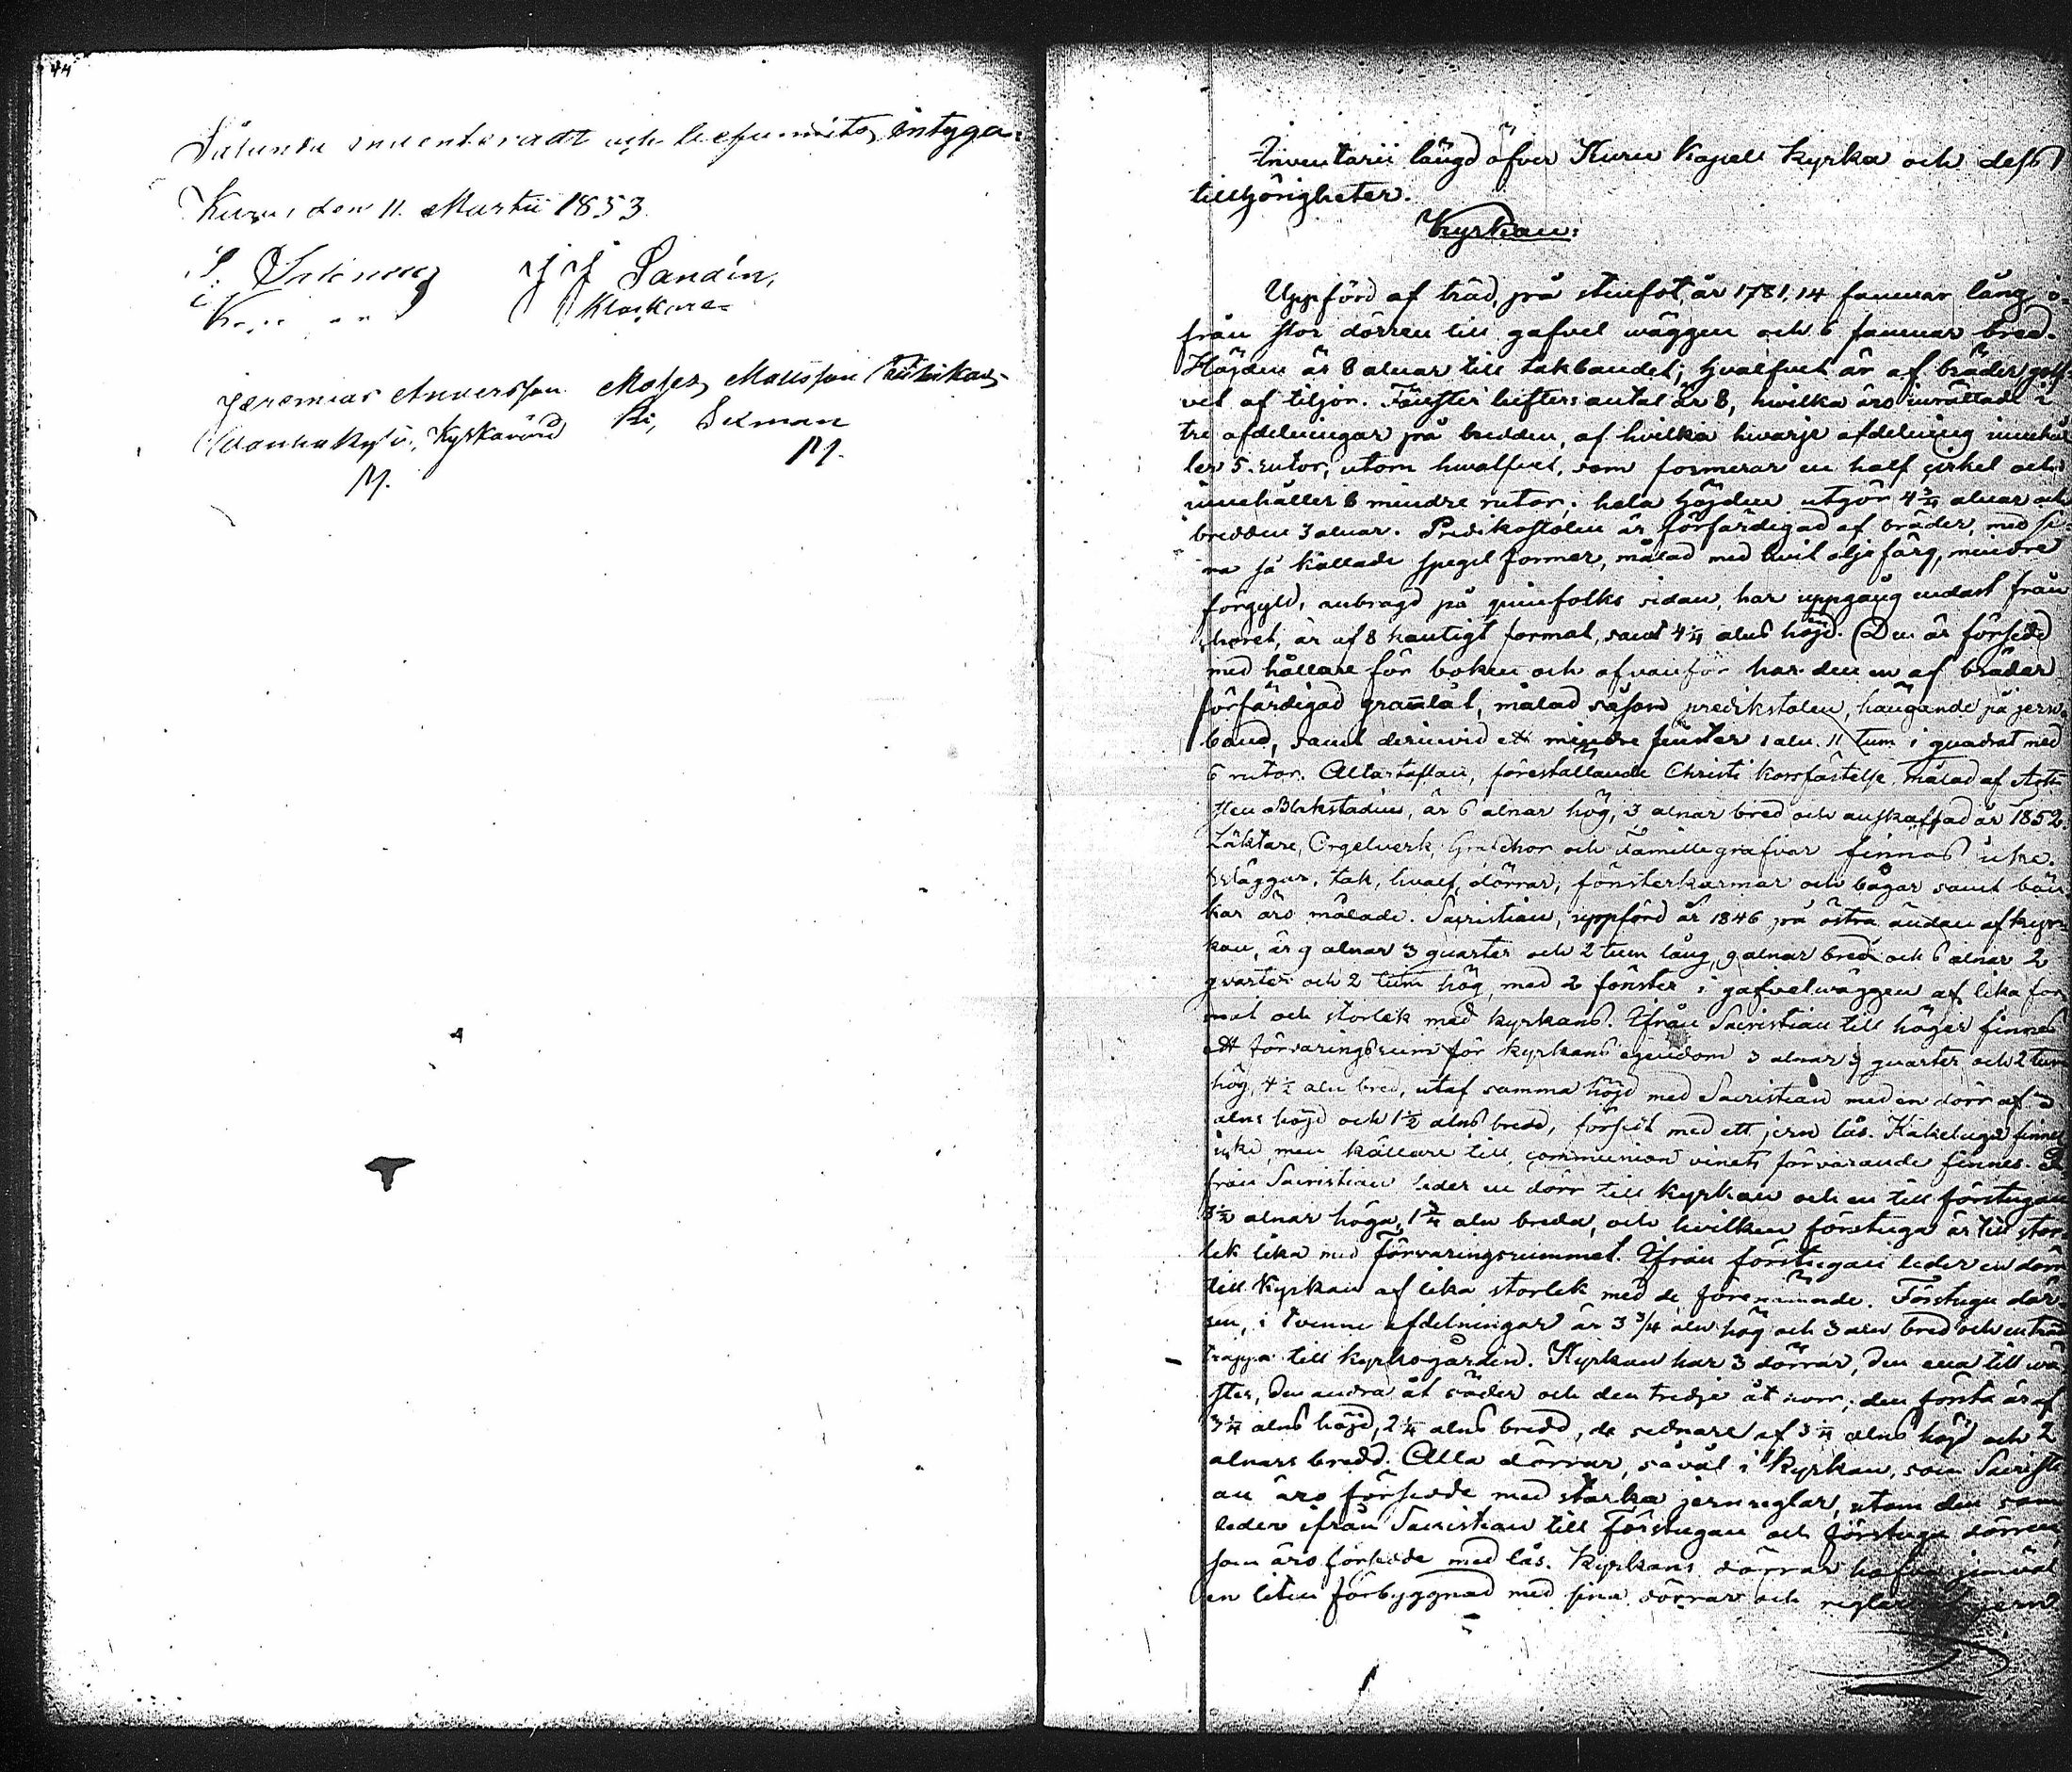 44
Sålunda inventeradt och befunnits, intyga.
Kuru, den 11. Martii 1853.
J J Sandin,
Klockare
Jeremias Andersson Moses Mattsson
Wanhakylä, Kyrkovärd Sexman
M. M.
Inventarii längd öfver Kuru Kapell Kyrka och dess
tillhörigheter.
Kyrkan:
Uppförd af träd, på stenfot, år 1781, 14 famnar lång
från stor dörren till gafvel wäggen och 6 famnar bred.
Höjden är 8 alnar till takbandet; hvalfvet är af bräder, golf-
vet af tiljor. Fönster lufters antal är 8, hvilka äro inrättade i
tre afdelningar på bredden, af hvilka hvarje afdelning innehål
ler 5 rutor, utom hvalfvet, som formerar en half cirkel och
innehåller 8 mindre rutor; hela höjden utgör 4 3/4 alnar och
bredden 3 alnar. Predikostolen är förfärdigad af bräder, med si
na så kallade spegel former, målad med hvit olje färg, mindre
förgyld, anbragd på qvinfolks sidan, har uppgång endast från
choret, är af 8 kantigt format, samt 4 1/4 alns höjd. Den är försedd
med hållare för boken och ofvanför har den en af bräder
förfärdigad grannlåt, målad såsom predikstolen, hängande på jern
band, samt derinvid ett mindre fenster 1 aln 11 tum i quadrat med
6 rutor. Altartaflan, föreställande Christi korsfästelse, målad af Arti
sten Blakstadius, är 6 alnar hög, 3 alnar bred och anskaffad år 1852.
Läktare, Orgelverk, Grafchor och Familiegrafvar finnas icke.
Wäggar, tak, hvalf, dörrar, fönsterkarmar och bågar samt bän
kar äro målade. Sacristian, uppförd år 1846 på östra ändan af kyr
kan, är 9 alnar 3 quarter och 2 tum lång, 9 alnar bred och 6 alnar 2
qvarter och 2 tum hög, med 2 fönster i gafvelwäggen af lika for
mat och storlek med kyrkans. Ifrån Sacristian till höger finnes
ett förvaringsrum för kyrkans egendom 3 alnar 3 quarter och 2 tum
hög, 4 1/2 aln bred, utaf samma höjd med Sacristian med en dörr af 3
alns höjd och 1 1/2 alns bredd, försedt med ett jern lås. Kakelugn finnes
icke, men källare till communion vinets förvarande finnes. I
från Sacristian leder en dörr till kyrkan och en till förstugan
3 1/2 alnar höga, 1 3/4 aln breda, och hvilken förstuga är till stor
lek lika med Förvaringsrummet. Ifrån förstugan leder en dörr
till Kyrkan af lika storlek med de förenämnde. Förstugu dör
ren, i tvenne afdelningar är 3 3/4 aln hög och 3 aln bred och en träd
trappa till kyrkogården. Kyrkan har 3 dörrar, den ena till wä
ster, den andra åt söder och den tredje åt norr; den första är af
3 1/4 alns höjd, 2 1/4 alns bredd, de sednare af 3 1/4 alns höjd och 2
alnars bredd. Alla dörrar, såväl i Kyrkan, som Sacristi
an äro försedde med starka jernreglar, utom den som
leder ifrån Sacristian till Förstugan och förstugu dörren,
som äro försedde med lås. Kyrkans dörrar hafva jemväl
en liten förbyggnad med sina dörrar och reglar jern